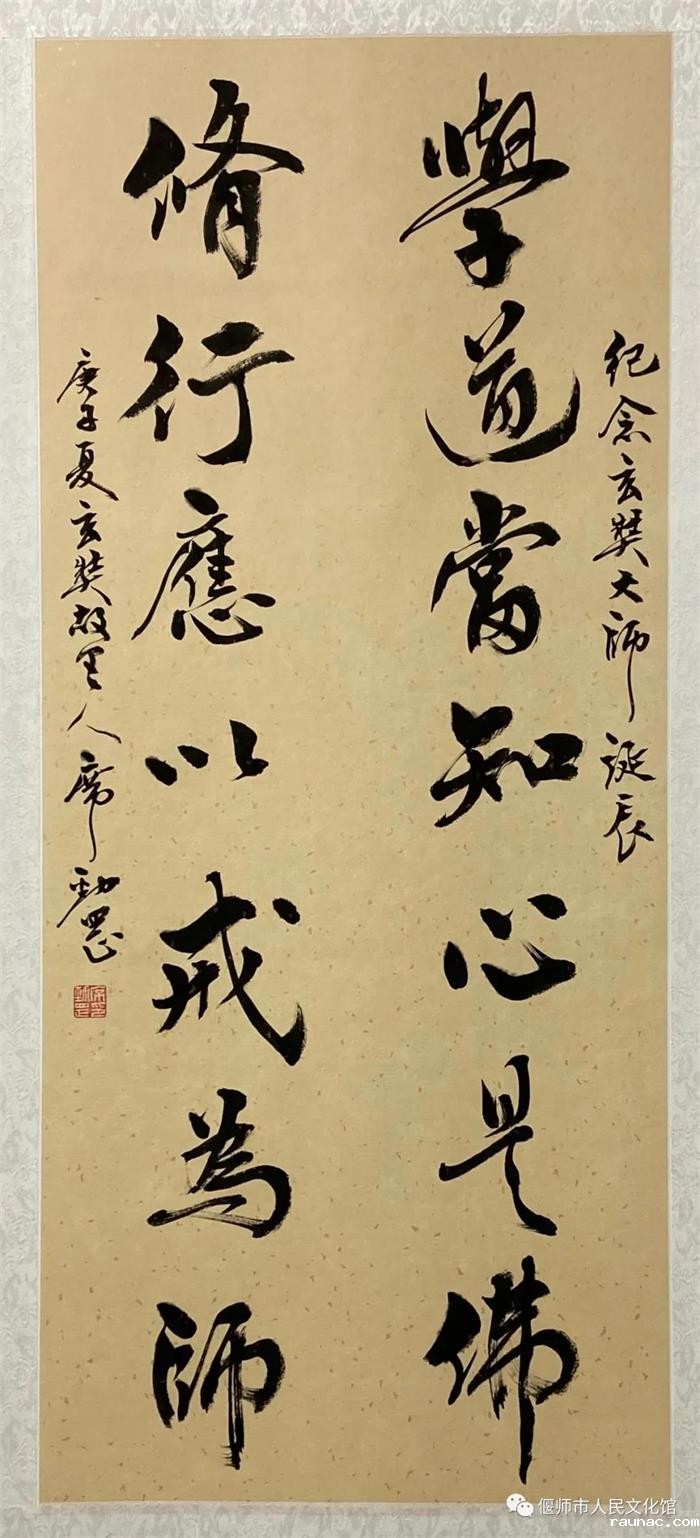 紀念玄奘大師誕辰
學道當知心是佛
脩行應以戒為師
庚子夏玄奘故里人席勁罡
偃师市人民文化馆
raunac.com